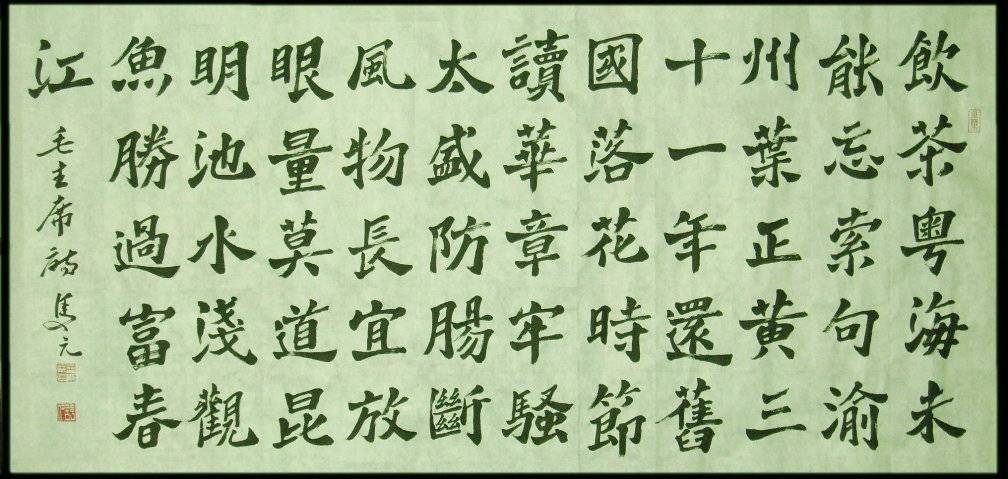 飲茶粵海未
能忘索句渝
州葉正黃三
十一年還舊
國落花時節
讀華章牢騷
太盛防腸斷
風物長宜放
眼量莫道昆
明池水淺觀
魚勝過富春
江
毛主席詩